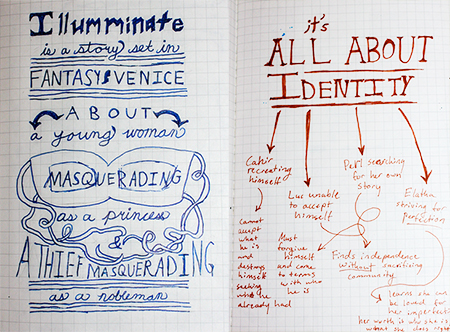 Illumminate
is a story set in
FANTASY VENICE
ABOUT
a young woman
MASQUERADING
as a princess
&
A THIEF MASQUERADING
as a nobleman
it's
ALL ABOUT
IDENTITY
Cahir
recreating
himself
Cannot
accept
what
he is
and
destroys
himself
seeking
what he
already had
Luc unable
to accept
himself
Must
forgive
himself
and come
to terms
with who
he is
Petri searching
for her own
story
Finds independence
without sacrificing
community
Elatha
striving for
perfection
learns she can
be loved for
her imperfect
her worth is who she is
what she does right